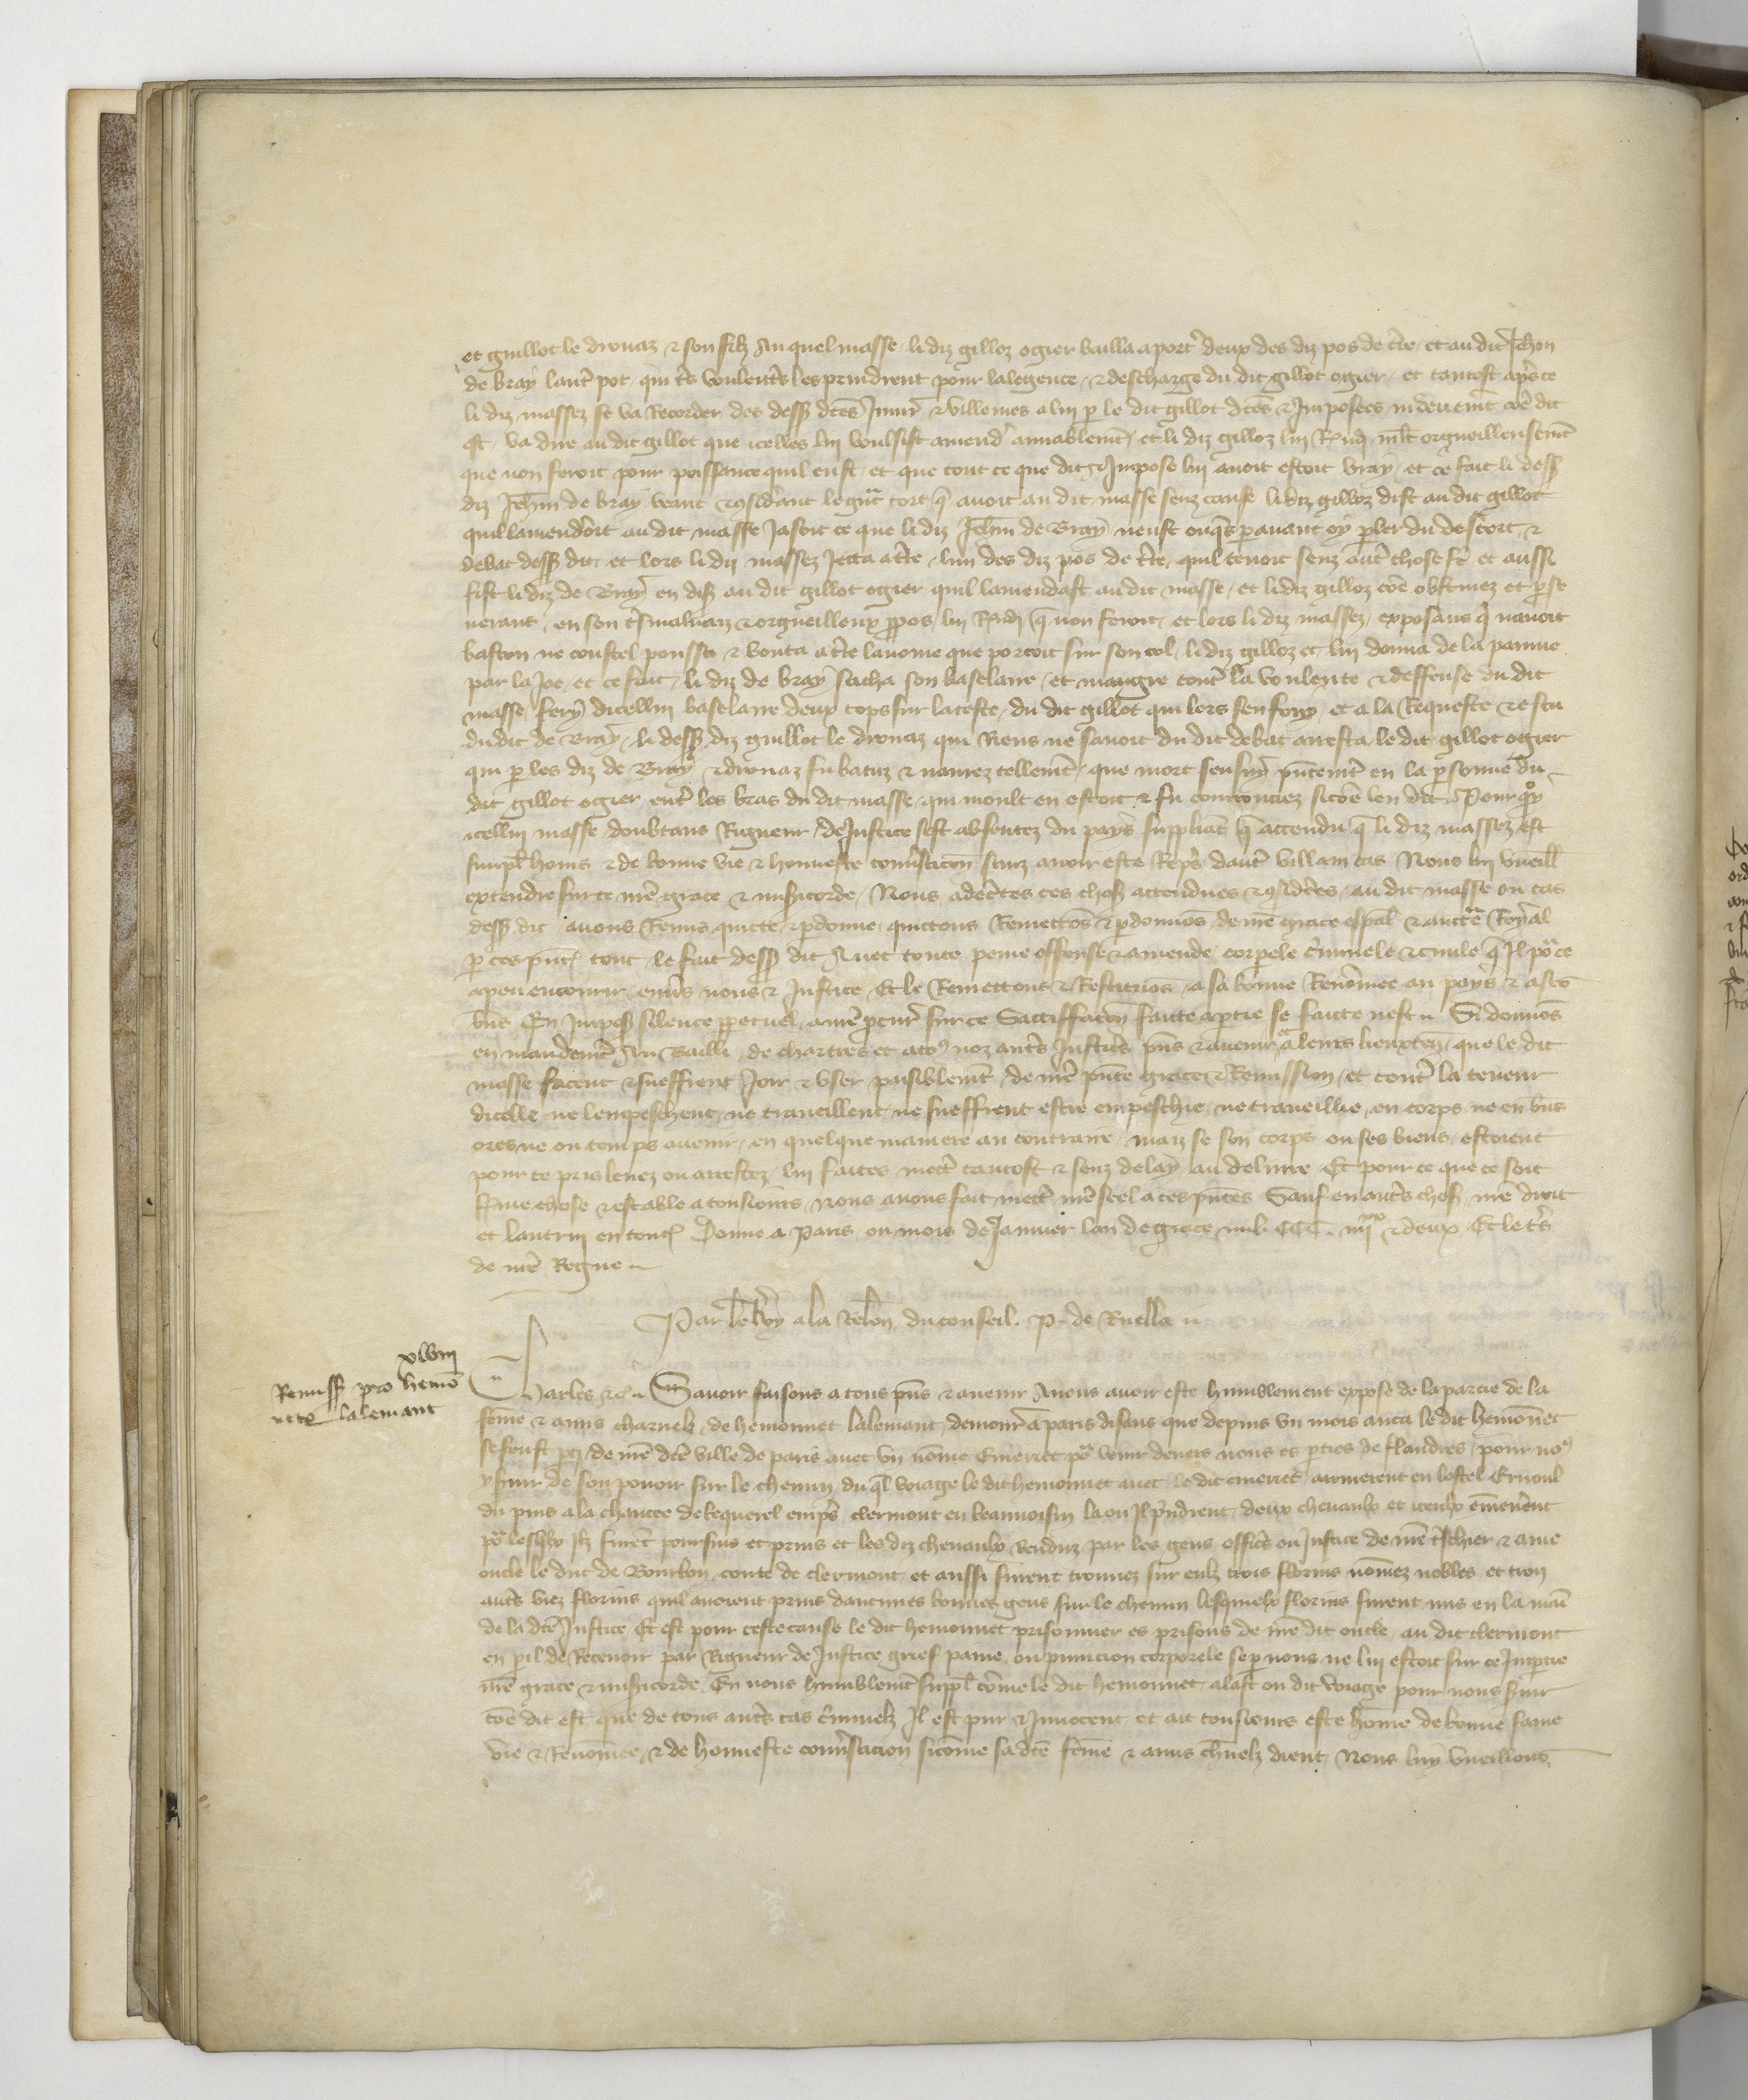 et guillot le drouaz & son filz Au quel masse li diz gilloz ogier bailla a port' deux des diz pos de tre et au dit Jehan
de bray laut' pot qui t's voulent's les prindrent pour lalegence & descharge du dit gillot ogier et tantost ap's ce
li diz massez se va Recorder des dess' dtes Iniur' & villenies a lui p le dit gillot dtes & Imposees indeuemt coe dit
est va dire au dit gillot que icelles lui voulsist amend' amiablemt et li diz gilloz lui Rndi mlt orgueilleusemt
que non feroit pour poissance quil eust et que tout ce que dit & Impose lui auoit estoit vray et ce fait li dess'
diz Jehan de bray veant & 9sid'ant le gnt tort q auoit au dit masse senz cause li diz gilloz dist au dit gillot
quil lamendroit au dit masse Jasoit ce que li diz Jehan de Bray neust onqs pauant oy pler du descort &
debat dess' dit et lors li diz massez Jetta a t're lun des diz pos de t're quil tenoit senz aut' chose fe et aussi
fist li diz de Bray en dis' au dit gillot ogier quil lamendast au dit masse et li diz gilloz coe obstinez et pse
uerant en son t'smaluaiz & orgueilleux ppos lui Rndi q non feroit et lors li diz massez exposans q nauoit
baston ne coustel poussa & bouta a t're lauoine que portoit sur son col li diz gilloz et lui donna de la paume
par la Joe et ce fait li diz de bray sacha son baselaire et maugre cont' la voulente & deffense du dit
masse fery dicellui baselaire deux cops sur la teste du dit gillot qui lors senfouy et a la Requeste & escu
du dit de Bray li dess' diz guillot le drouaz qui Riens ne sauoit du dit debat arresta le dit gillot ogier
qui p les diz de Bray & drouaz fu batuz & naurez tellemt que mort sensuy pntemt en la psonne du
dit gillot ogier ent' les bras du dit masse qui moult en estoit & fu courrouciez sicoe len dit Pour quoy
icellui masse doubtans Rigueur de Justice sest absentez du pays suppliat q attendu q li diz massez est
simpl' homs & de bonne vie & honneste conusacion senz auoir este Repris daut' villain cas Nous lui vueill'
extendre sur ce nre grace & misicorde Nous adc'tes ces chos' attendues & 9sid'ees au dit masse ou cas
dess' dit auons Remis quicte & pdonne quictons Remettos & pdonnos de nre grace espal & auctte Royal
p ces pnt' tout le fait dess' dit Auec toute peine offense & amende corpele c'minele & ciuile q Il por ce
a peu encourir enu's nous & Justice Et le Remettons & Restituos a sa bonne Renomee au pays & a ses
bns En Impos' silence ppetuel a nre pcur' sur ce Satisffacon faicte a ptie se faicte nest Si donnos
en mandemt Au Bailli de chartres et a to9 noz aut's Justic's pns & auenir a leurs lieuxten que le dit
masse facent & sueffrent Joir & vser paisiblemt de nre pnte grace & Remission et cont' la teneur
dicelle ne lempeschent ne traueillent ne sueffrent estre empeschie ne traueillie en corps ne en bns
ores ne ou temps auenir en quelque maniere au contraire maiz se son corps ou ses biens estoient
pour ce pris leuez ou arrestez lui faites mett' tantost & senz delay au deliure Et pour ce que ce soit
ferme chose & estable a tousiours Nous auons fait mett' nre seel a ces pntes Sauf en aut's chos' nre droit
et lautruy en tout' Donne a Paris ou mois de Januier lan de grace mil CCC iiiixx & deux Et le t's
de nre Regne
Par le Roy a la Relon du conseil. P. de Ruella
xlviij
Remiss' pro hemo
nete lalemant
Charles &c Sauoir faisons a tous pns & auenir A nous auoir este humblement expose de la partie de la
feme & amis charnelz de hemonnet lalemant demour' a paris disans que depuis vn mois enca le dit hemonnet
se feust pti de nre dte ville de paris auec vn nome Emeriet pour venir deuers nous es pties de flandres pour no9
y seruir de son pouoir sur le chemin du ql voiage le dit hemonnet auec le dit emeriet arriuerent en lostel Ernoul
du puis a la chaucee de bequerel emps clermont en beauuoisin la ou Il prdrent deux cheuaulx et iceulx emenerent
por lesqlx Ilz furent poursuis et prins et les diz cheuaulx Renduz par les gens officiers ou Justice de nre t'schier & ame
oncle le duc de Bourbon conte de clermont et aussi furent trouuez sur eulx trois florins nomez nobles et trois
aut's viez florins quil auoient prins daucunes bonnes gens sur le chemin lesquelx florins furent mis en la main
de la dte Justice Et est pour ceste cause le dit hemonnet prisonnier es prisons de nre dit oncle au dit clermont
en peril de Receuoir par Rigueur de Justice grief paine ou punicion corporele se p nous ne lui estoit sur ce Impartie
nre grace & misicorde En nous humblemt suppl' come le dit hemonnet alast ou dit voiage pour nous seruir
coe dit est que de tous aut's cas c'minelz Il est pur & Innocent et ait tousiours este home de bonne fame
vie & Renomee & de honneste conusacion sicome sa dte feme & amis chnelz dient Nous luy vueillons